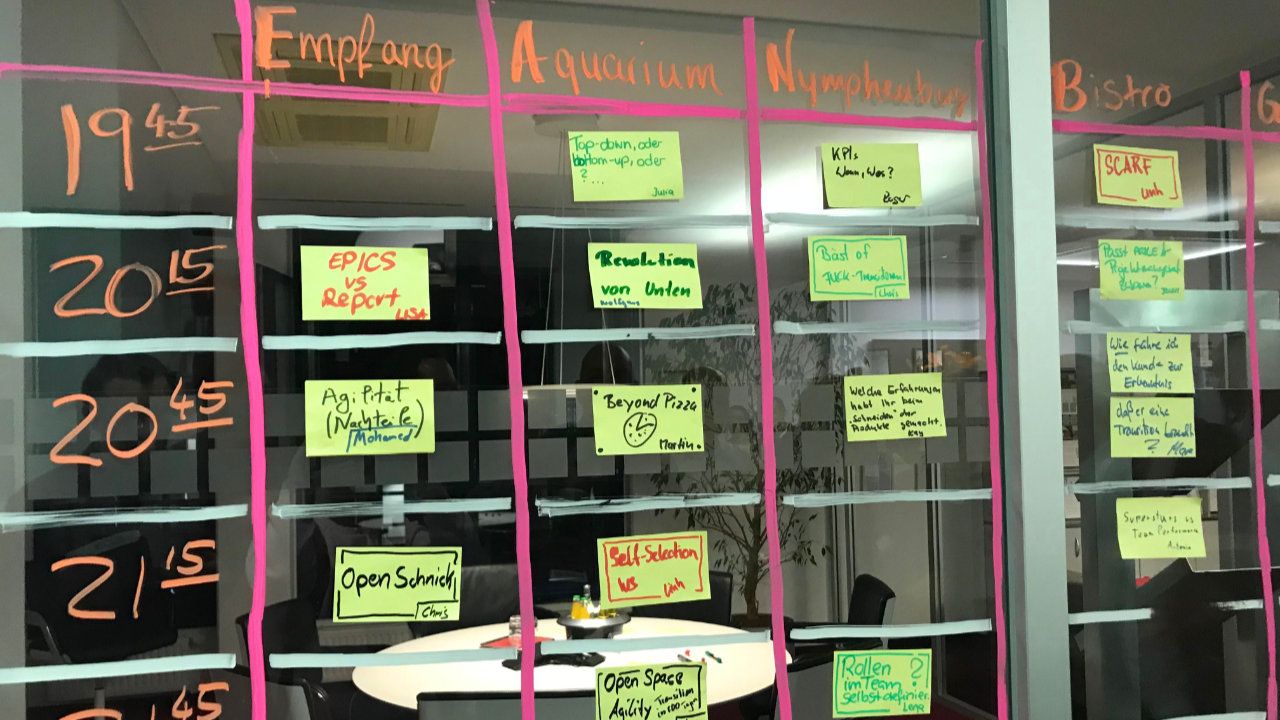 Empfang Aquarium Nymphenburg Bistro G
19 45
Top-down, oder
bottom-up, oder
? ...
Julia
KPIs
Wann, Was?
SCARF
Linh
20 15
EPICS
vs
Report
LISA
Revolution
von Unten
Wolfgang
Bäst of
FUCK-Transitionen
Chris
Passt AGILE &
20 45
Agilität
(Nachteile)
Mohamed
"Beyond Pizza"
Martin
Welche Erfahrungen
habt Ihr beim
Schneiden der
Produkte gemacht.
Kay
Wie führe ich
den Kunde zur
Erkenntnis
daß er eine
Transition braucht
?
21 15
Open Schnick
Chris
Self-Selection
WS Linh
Superstars vs
Team Performance
Antonia
45
Open Space
Agility Transition
in 100 Tagen
Rollen ?
im Team
selbst definier.
Lena